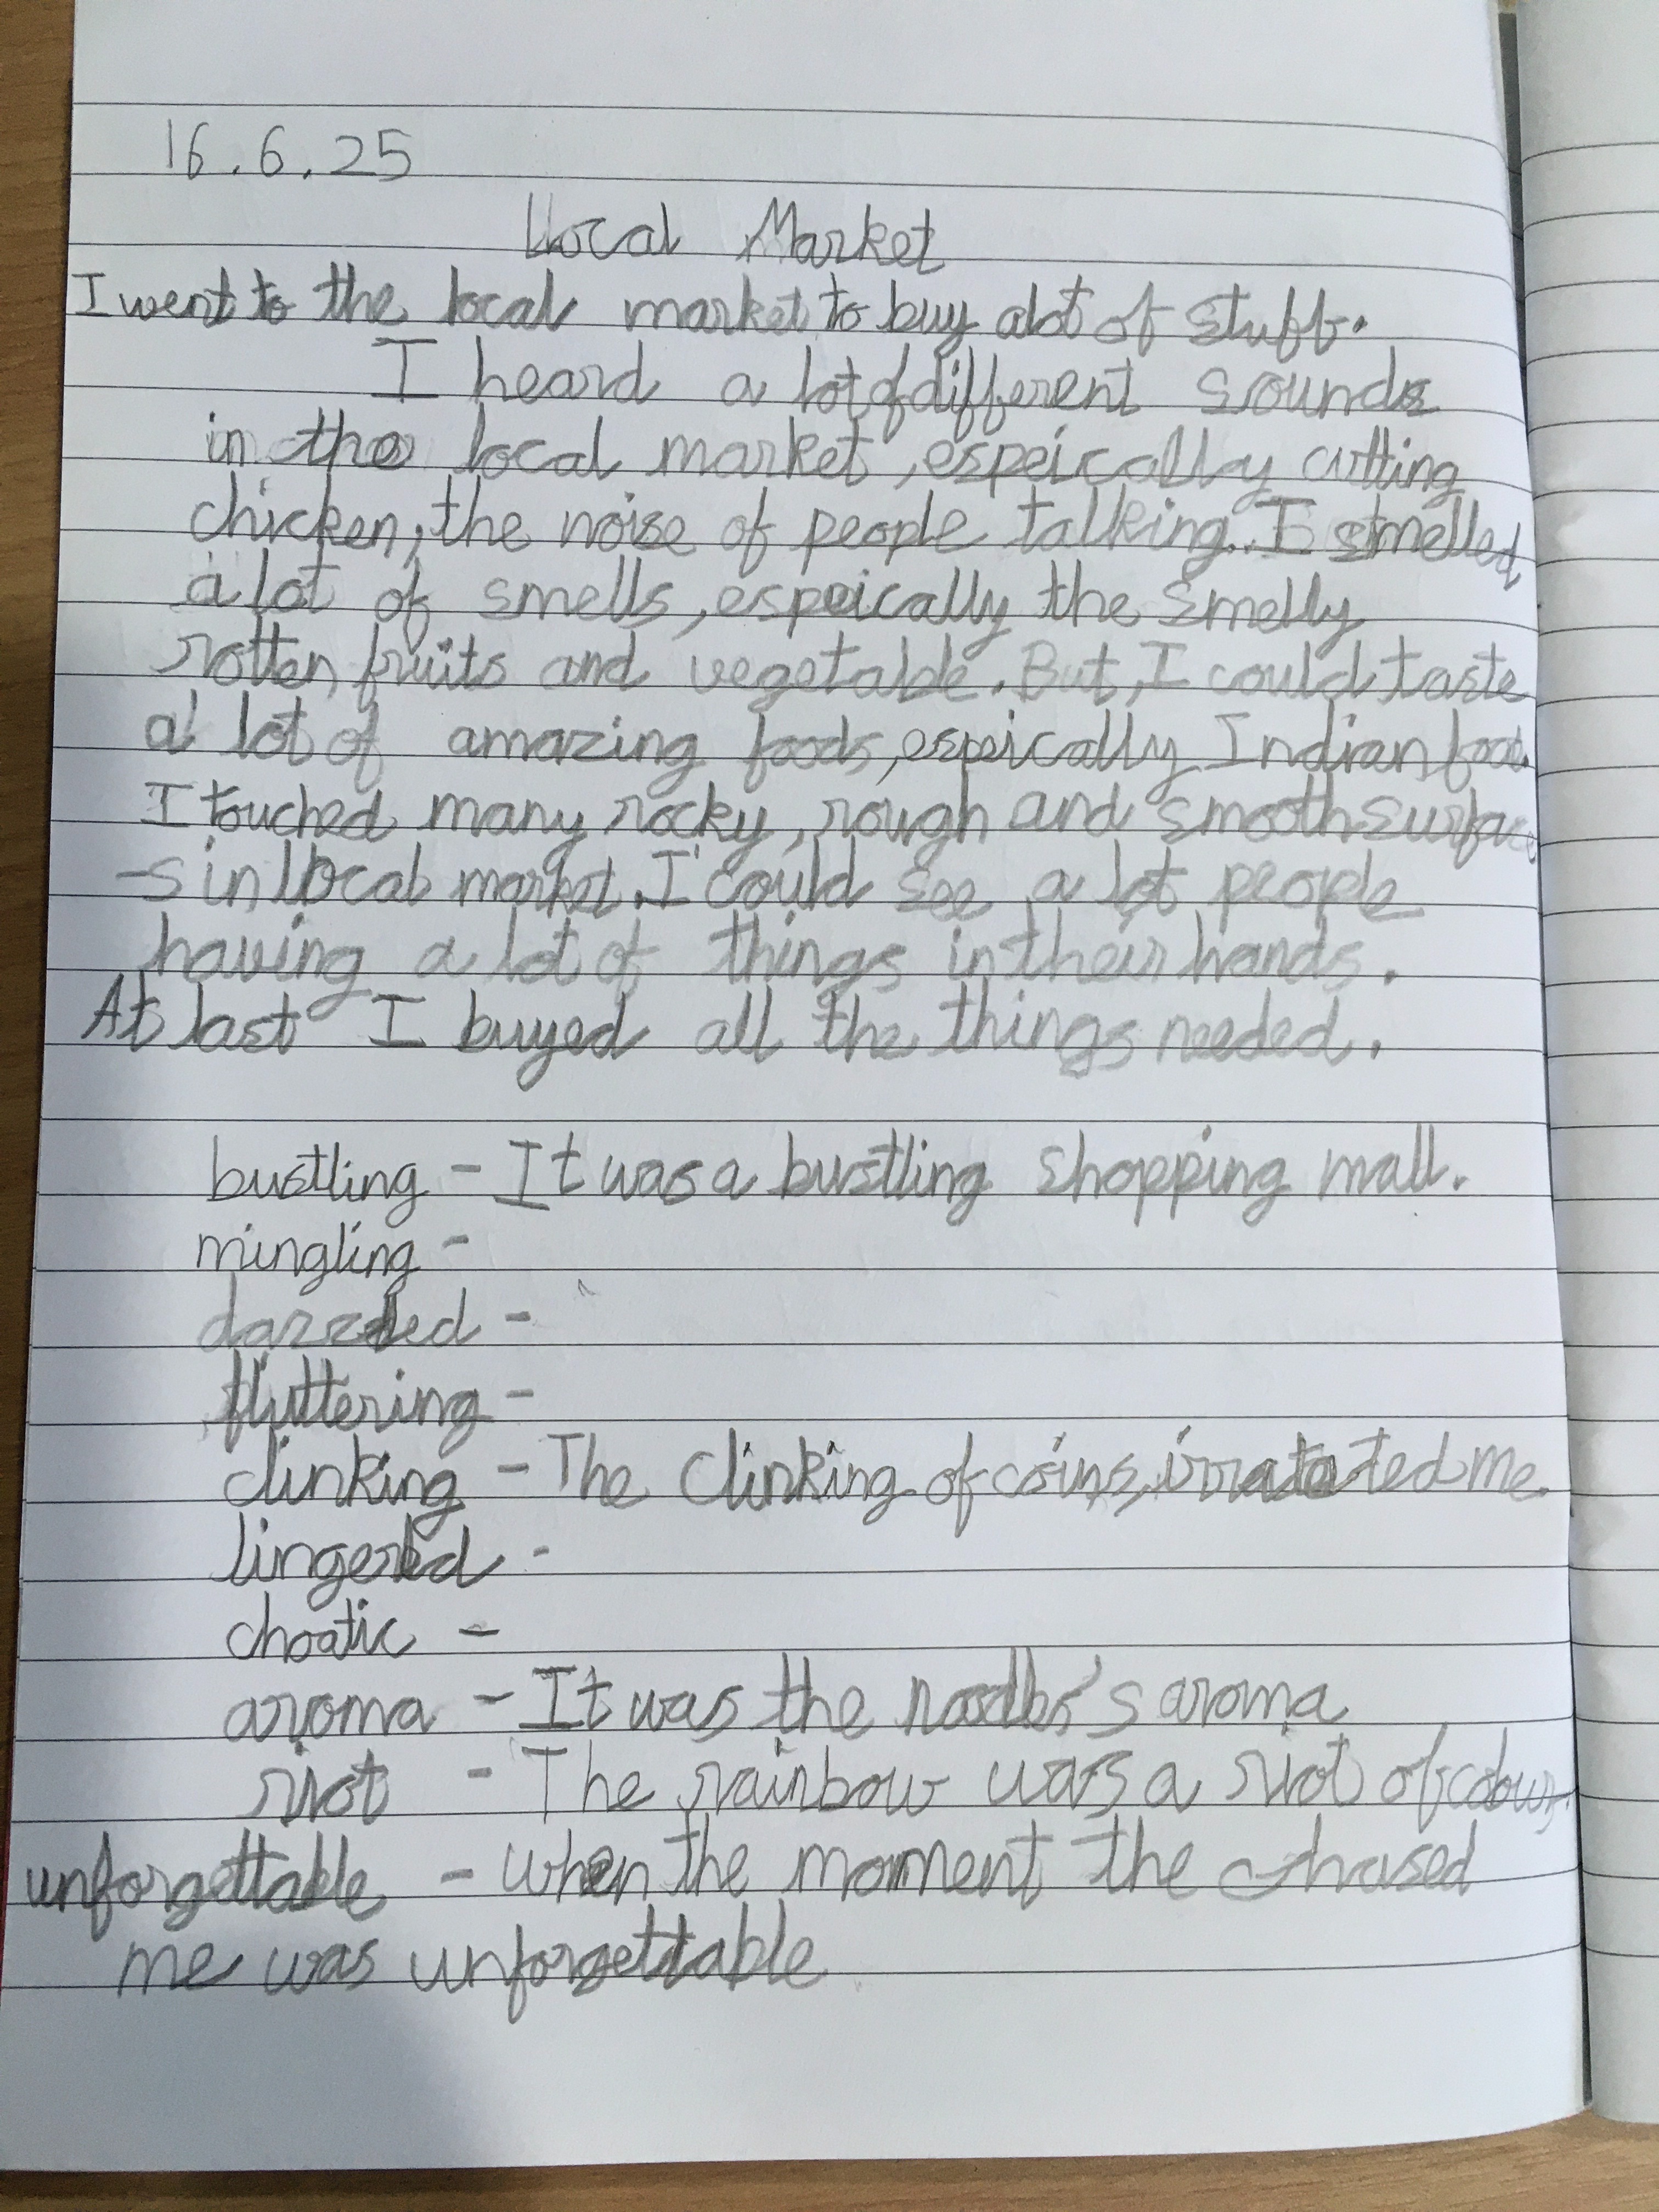 16.6.25
Local Market
I went to the local market to buy alot of stuff.
I heard a lot of different sounds
in the local market, espeically cutting
chicken, the noise of people talking. I smelled
a lot of smells, espeically the smelly
rotten fruits and vegetable. But, I could taste
a lot of amazing foods, espeically Indian food.
I touched many rocky, rough and smooth surface
-s in local market. I could see a lot people
having a lot of things in their hands.
At last I buyed all the things needed.
bustling - It was a bustling shopping mall.
mingling -
dazzled -
fluttering -
clinking - The clinking of coins, irratated me.
lingered -
choatic -
aroma - It was the noodles's aroma
riot - The rainbow was a riot of colour.
unforgettable - when the moment the chased
me was unforgettable